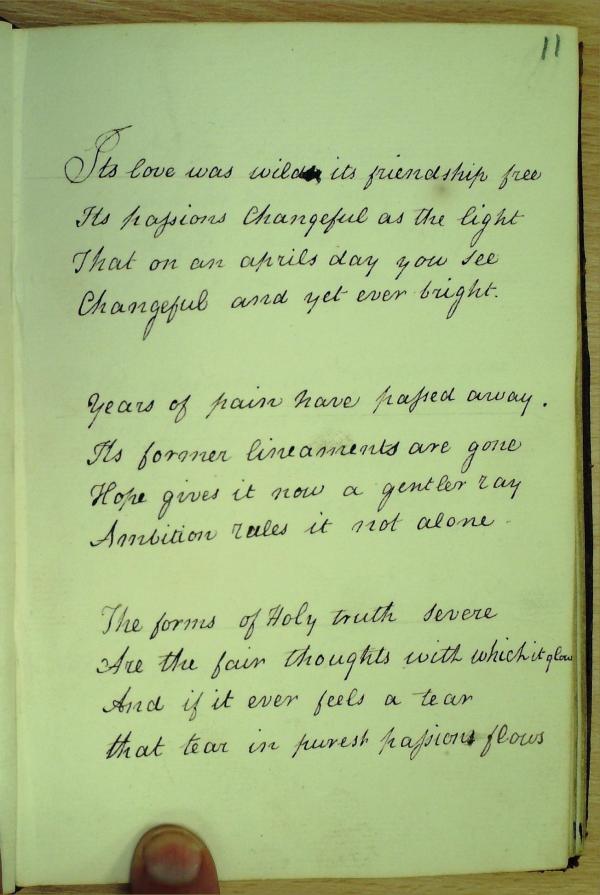 11
Its love was wild its friendship free
Its passions Changeful as the light
That on an aprils day you see
Changeful and yet ever bright.
Years of pain have passed away.
Its former lineaments are gone
Hope gives it now a gentler ray
Ambition rules it not alone.
The forms of Holy truth severe
Are the fair thoughts with which it glow
And if it ever feels a tear
that tear in purest passions flows